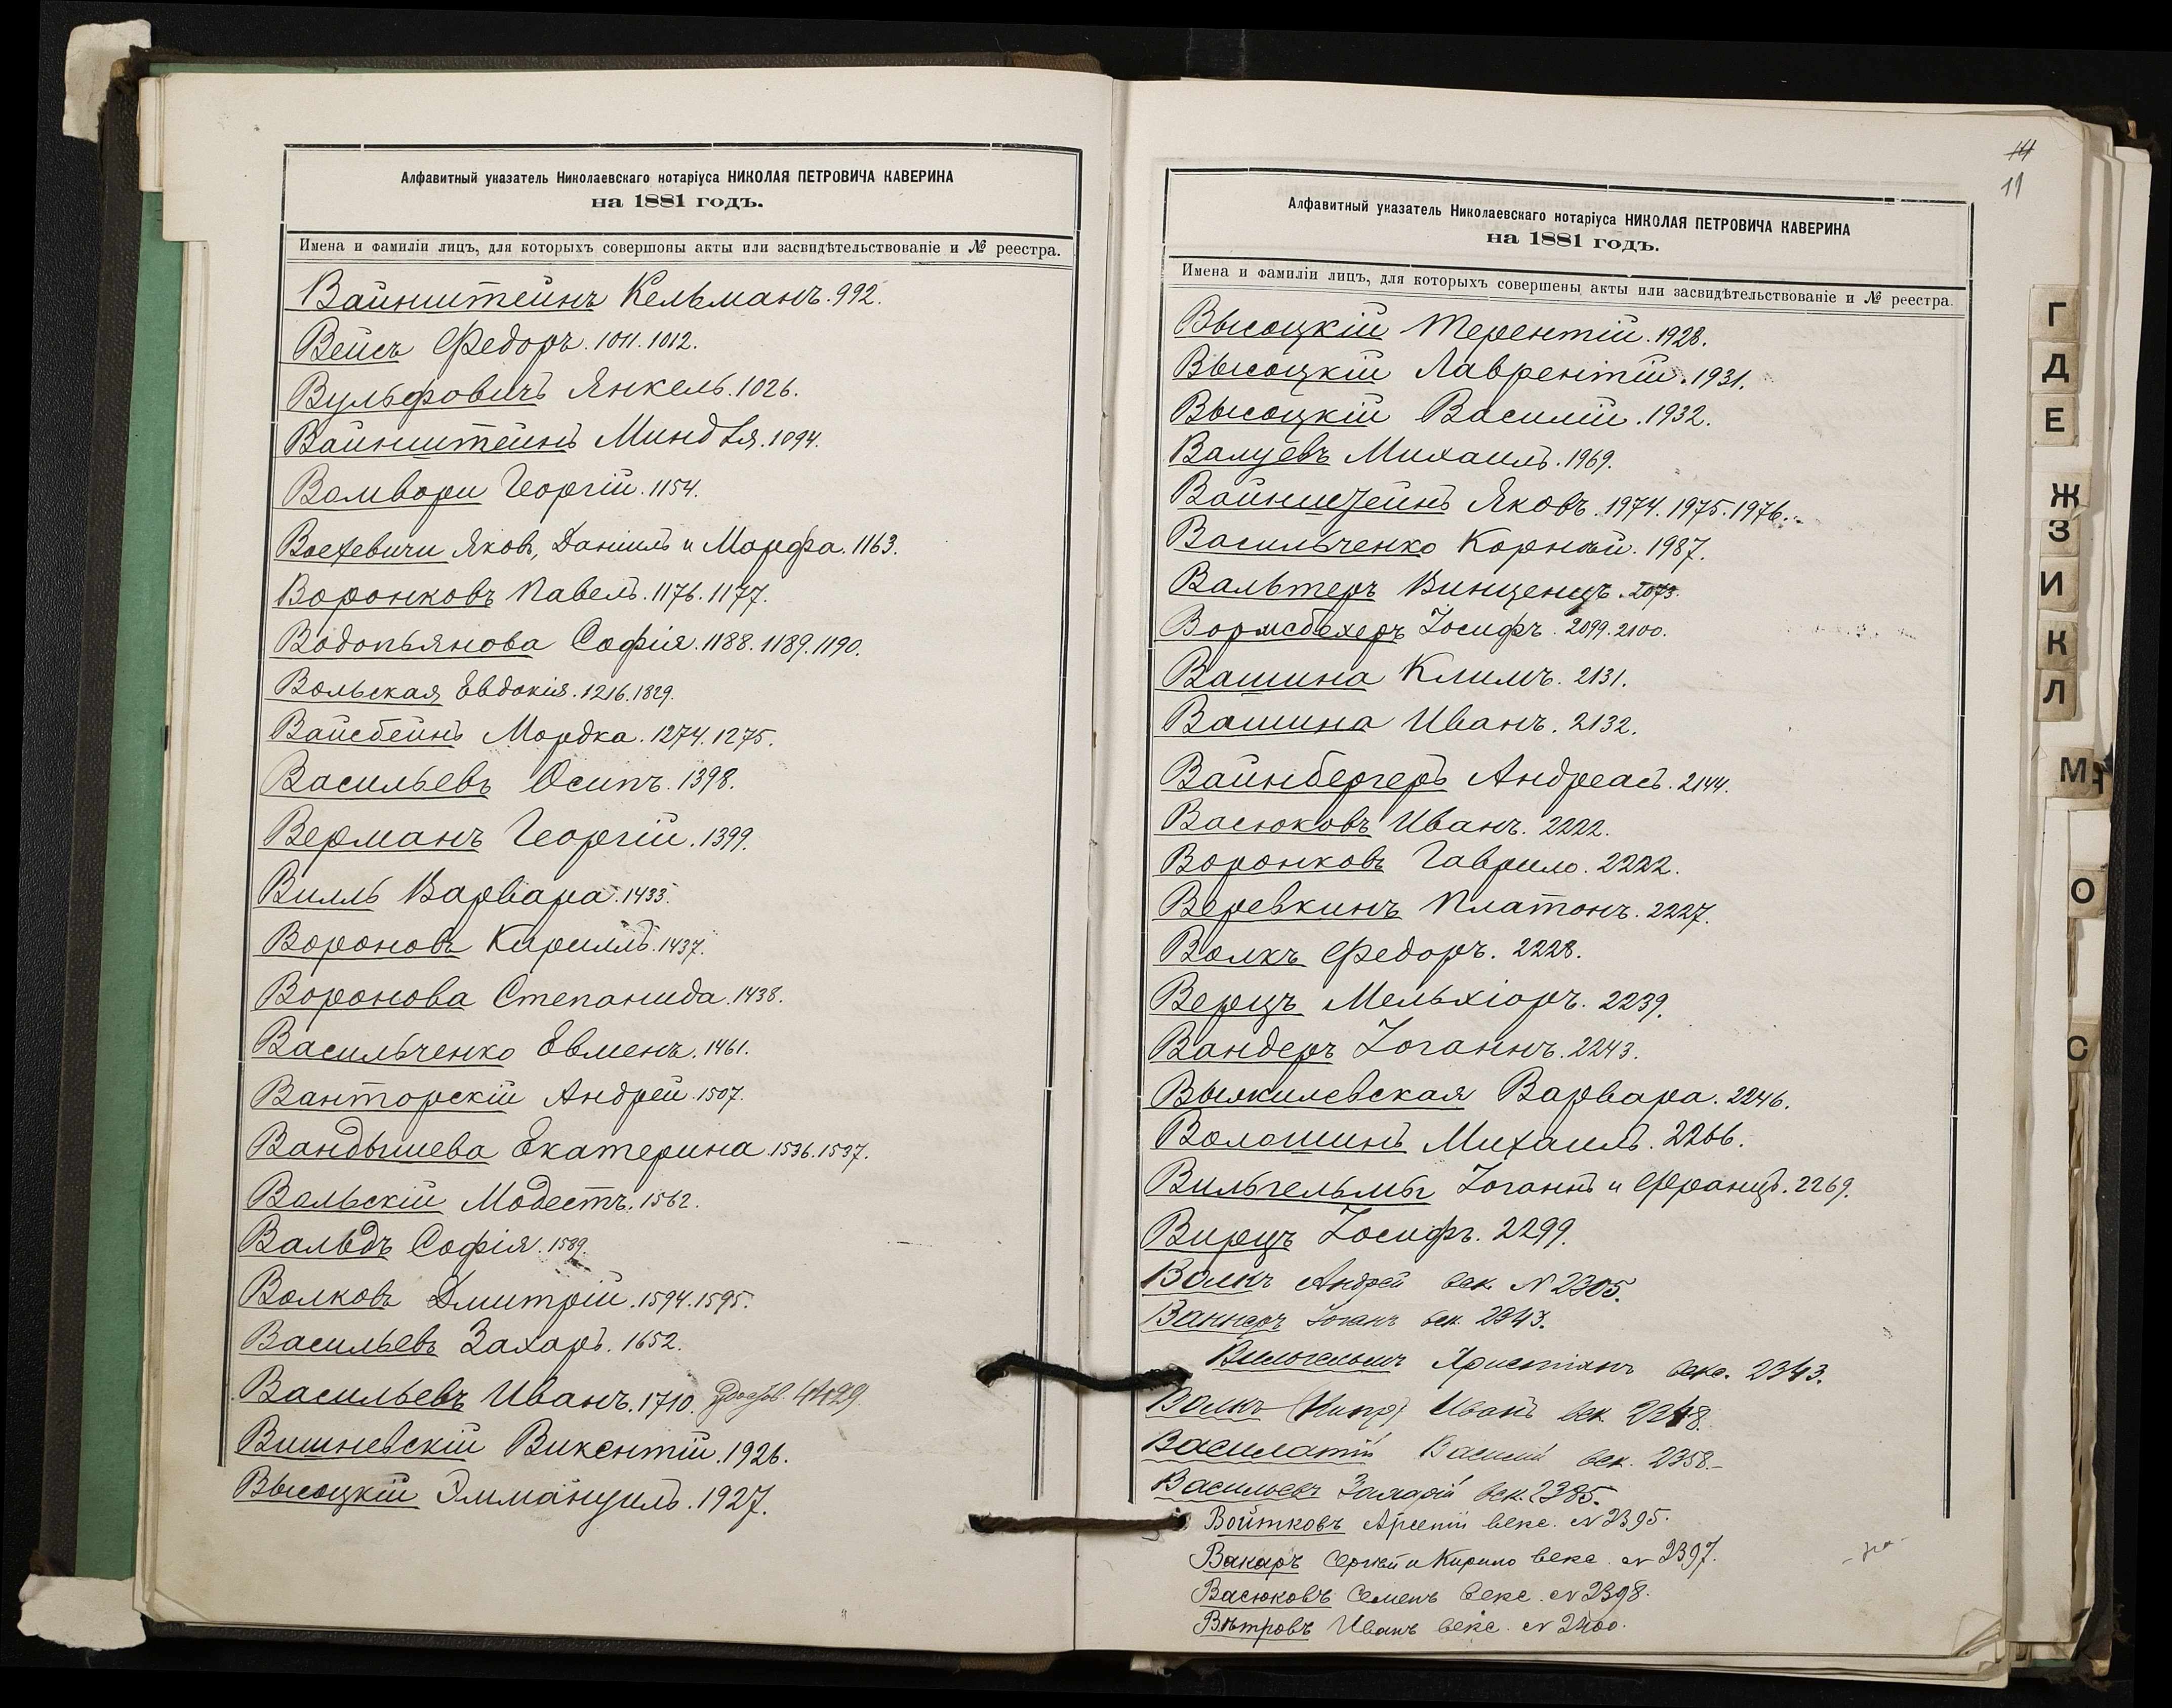 Алфавитный указатель Николаевскаго нотаріуса НИКОЛАЯ ПЕТРОВИЧА КАВЕРИНА
на 1881 годъ.
Имена и фамиліи лицъ, для которыхъ совершоны акты или засвидѣтельствованіе и № реестра.
Вайнштейнъ Кельманъ. 992.
Вейсъ Федоръ. 1011. 1012.
Вульфовичъ Янкель. 1026.
Вайнштейнъ Миндля. 1094.
Вамвори Георгій. 1154.
Воехевичи Яковъ, Даніилъ и Марфа. 1163.
Воронковъ Павелъ. 1176. 1177.
Водопьянова Софія. 1188. 1189. 1190.
Вольская Евдокія. 1216. 1829.
Вайсбейнъ Мордка. 1274. 1275.
Васильевъ Осипъ. 1398.
Верманъ Георгій. 1399.
Вилль Варвара. 1433.
Вороновъ Кириллъ. 1437.
Воронова Степанида. 1438.
Васильченко Евменъ. 1461.
Ванторскій Андрей. 1507.
Вандышева Екатерина. 1536. 1537.
Вольскій Модестъ. 1562.
Вальдъ Софія. 1589.
Волковъ Дмитрій. 1594. 1595.
Васильевъ Захаръ. 1652.
Васильевъ Иванъ. 1710.
Вишневскій Викентій. 1926.
Высоцкій Эммануилъ. 1927.
11
Алфавитный указатель Николаевскаго нотаріуса НИКОЛАЯ ПЕТРОВИЧА КАВЕРИНА
на 1881 годъ.
Имена и фамиліи лицъ, для которыхъ совершены акты или засвидѣтельствованіе и № реестра.
Высоцкій Терентій. 1928.
Высоцкій Лаврентій. 1931.
Высоцкій Василій. 1932.
Валуевъ Михаилъ. 1969.
Вайнштейнъ Яковъ. 1974. 1975. 1976.
Васильченко Корнѣй. 1987.
Вальтеръ Винценцъ. 2073.
Вормсбехеръ Іосифъ. 2099. 2100.
Вашина Климъ. 2131.
Вашина Иванъ. 2132.
Вайнбергеръ Андреасъ. 2144.
Васюковъ Иванъ. 2222.
Воронковъ Гаврило. 2222.
Веревкинъ Платонъ. 2227.
Волкъ Федоръ. 2228.
Верцъ Мельхіоръ. 2239.
Вандеръ Іоганнъ. 2243.
Выжилевская Варвара. 2246.
Волошинъ Михаилъ. 2266.
Вильгельмы Іоганнъ и Францъ. 2269.
Вирцъ Іосифъ. 2299.
Волкъ Андрей век. N 2305.
Ваннеръ Іоганъ век. 2343.
Вильгельмъ Христіанъ векс. 2343.
Волкъ Иванъ век.
Василатій Василій век. 2358.
Васильевъ Захарій век. 2385.
Войтковъ Арсеній векс. N 2395.
Вакаръ Сергѣй и Кирило векс. N 2397.
Васюковъ Семенъ векс. N 2398.
Вѣтровъ Иванъ векс. N 2400.
Г
Д
Е
Ж
З
И
К
Л
М
О
С